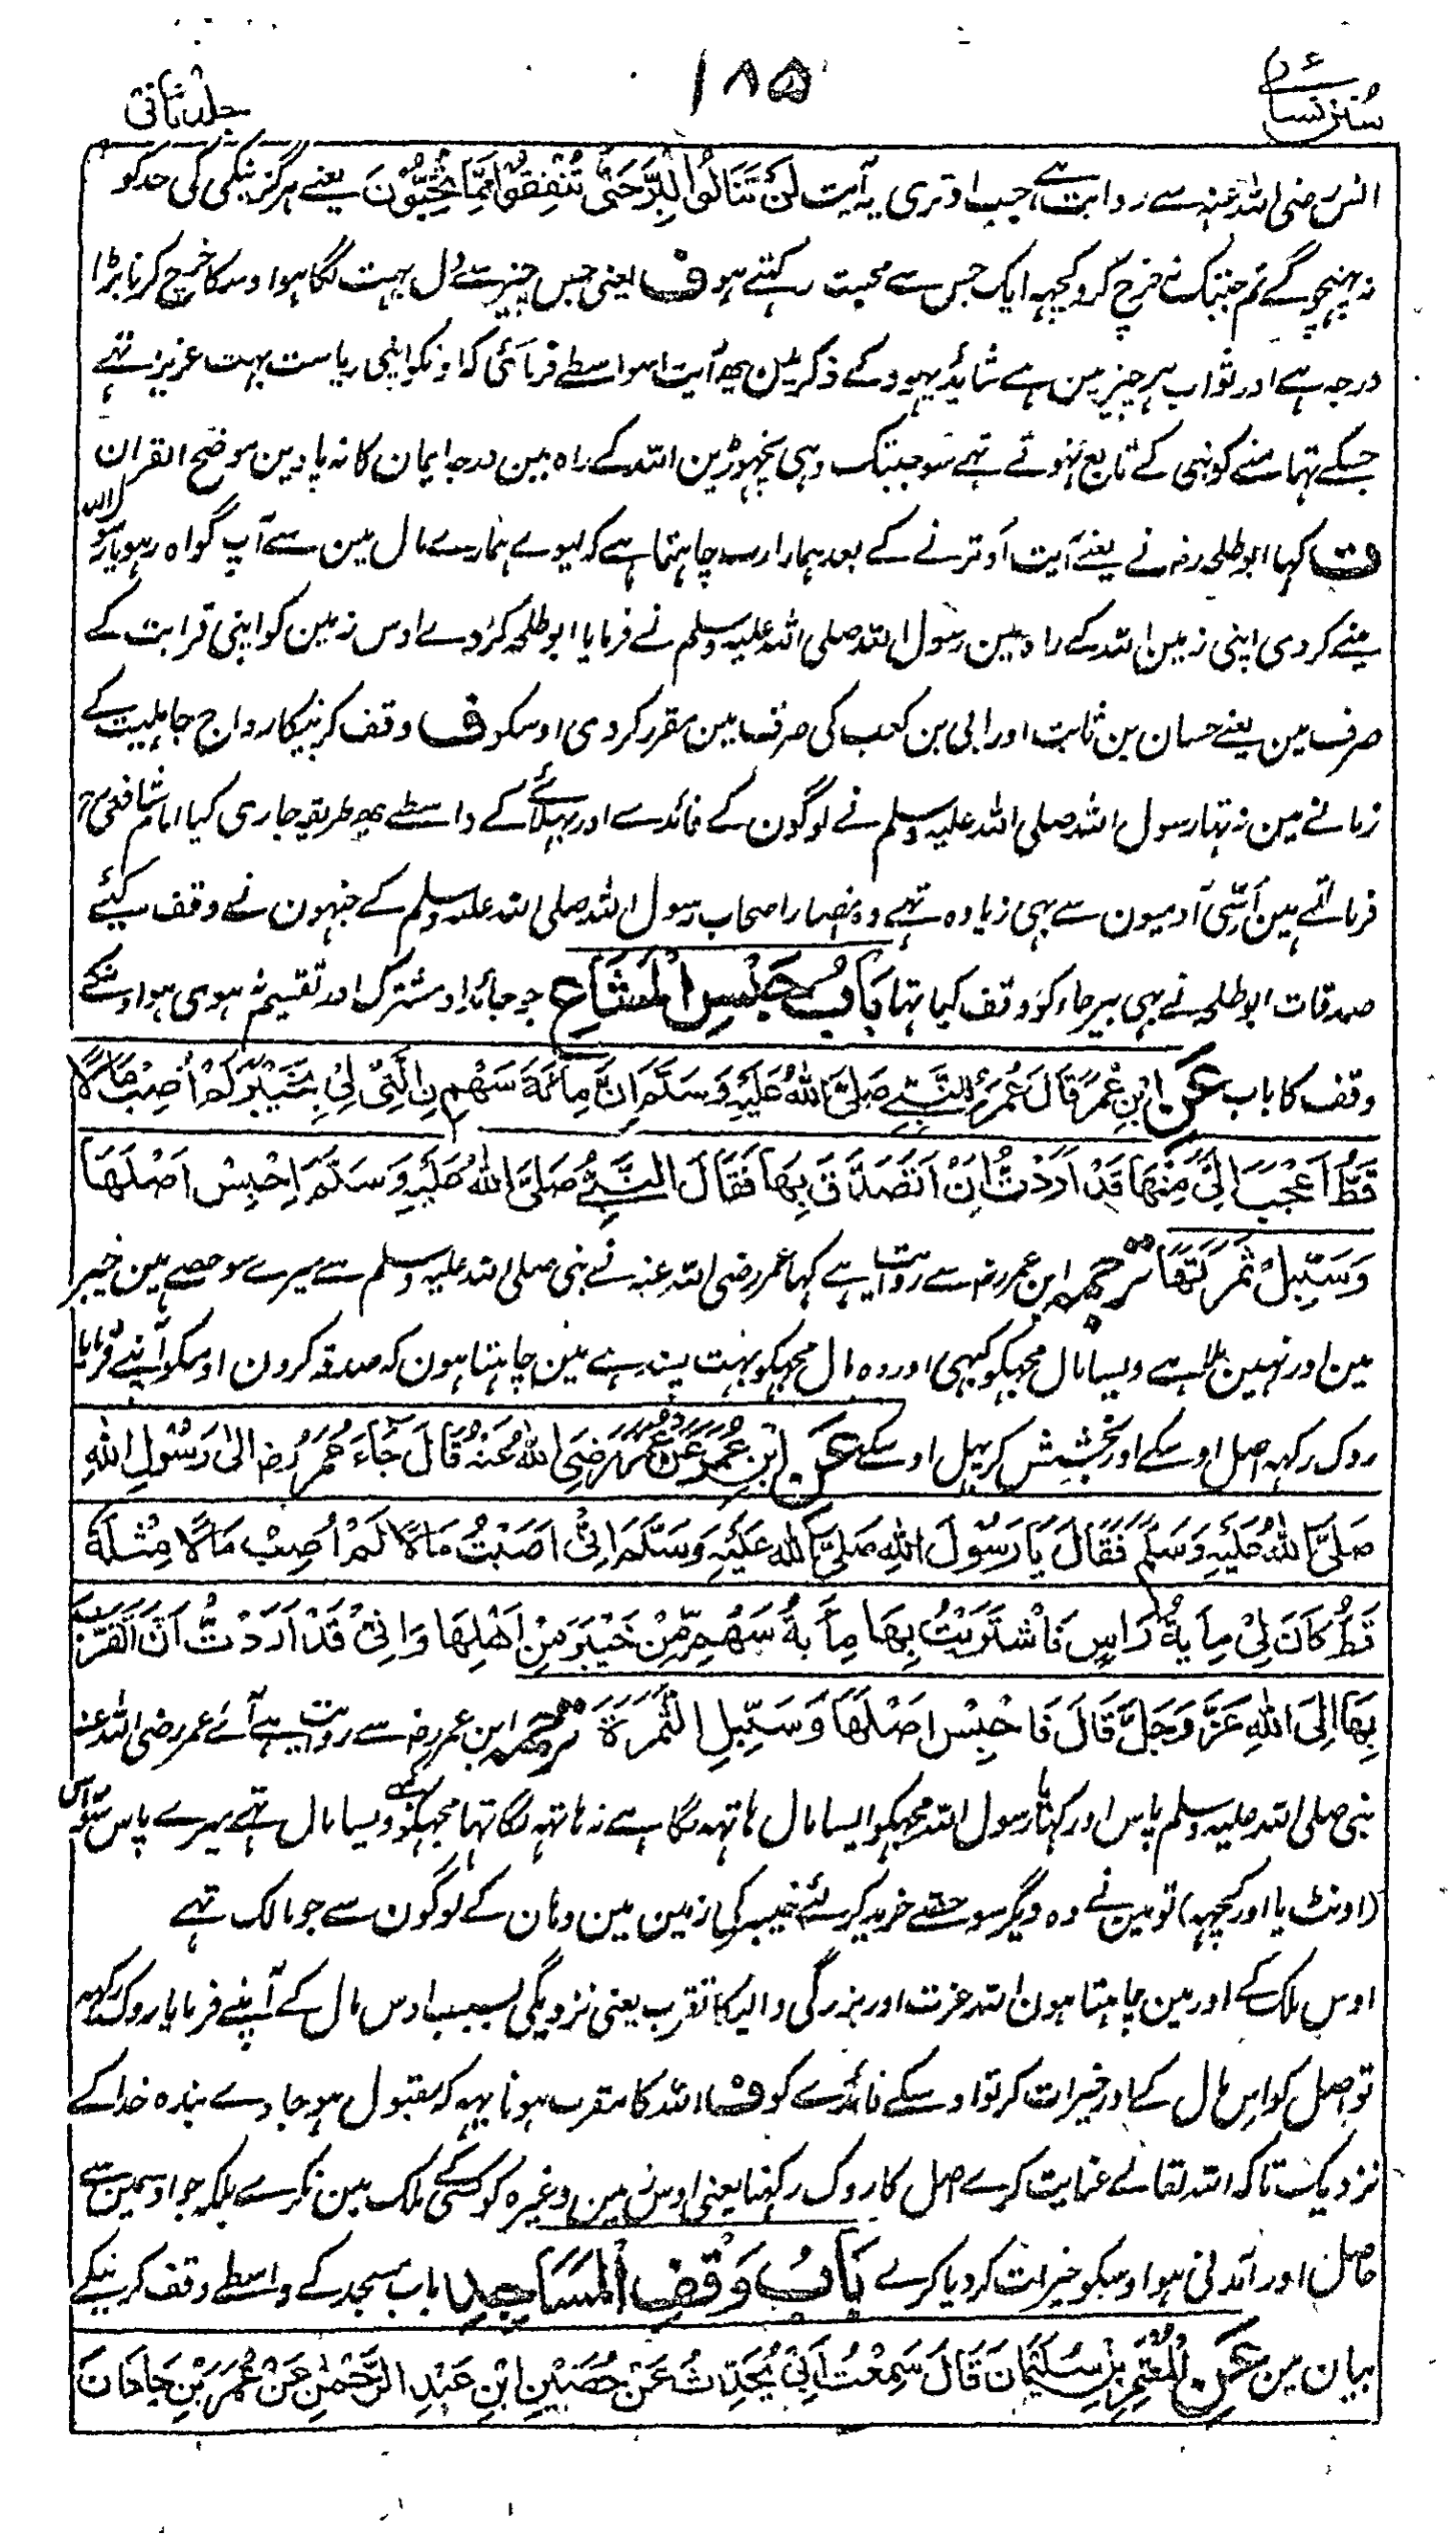 سنن نسائی ۱۸۵ جلد ثانی
انس رضی اللہ عنہ سے روایت ہے جب اوتری یہ آیت لَنْ تَنَالُوا الْبِرَّ حَتّٰى تُنْفِقُوْا مِمَّا تُحِبُّوْنَ یعنے ہرگز نیکی کی حد کو
نہ پہنچوگے تم جبتک نہ خرچ کرو کچہہ ایک جس سے محبت رکہتے ہو ف یعنی جس چیز سے دل بہت لگا ہو اوسکا خرچ کرنا بڑا
درجہ ہے اور ثواب ہر چیز مین ہے شاید یہود کے ذکر مین یہ آیت اسواسطے فرمائی کہ اونکو اپنی ریاست بہت عزیز تہے
جسکے تہامنے کو نبی کے تابع نہوتے تہے سو جبتک وہی نچہوڑین اللہ کے راہ مین درجہ ایمان کا نہ پاوین موضح القران
ت کہا ابو طلحہ رضہ نے یعنے آیت اوترنے کے بعد ہمارا رب چاہتا ہے کہ لیوے ہمارے مال مین سے آپ گواہ رہو یا رسول اللہ
مینے کر دی اپنی زمین اللہ کے راہ مین رسول اللہ صلی اللہ علیہ وسلم نے فرمایا ابو طلحہ کر دے اوس زمین کو اپنی قرابت کے
صرف مین یعنے حسان بن ثابت اور ابی بن کعب کی صرف مین مقرر کر دی اوسکو ف وقف کرنیکا رواج جاہلیت کے
زمانے مین نہ تہا رسول اللہ صلی اللہ علیہ وسلم نے لوگون کے فائدے اور بہلائے کے واسطے یہ طریقہ جاری کیا امام شافعی رح
فرماتے ہین اَسّی آدمیون سے بہی زیادہ تہے وہ انصار اصحاب رسول اللہ صلی اللہ علیہ وسلم کے جنہون نے وقف کیئے
صدقات ابو طلحہ نے بہی بیرحاء کو وقف کیا تہا بَابُ حَبْسِ الْمَشَاعِ جو جائداد مشترک اور تقسیم نہ ہوی ہو اوسکے
وقف کا باب عَنِ ابْنِ عُمَرَ قَالَ عُمَرُ لِلنَّبِيِّ صَلَّى اللّٰهُ عَلَيْهِ وَسَلَّمَ اِنَّ مِائَةَ سَهْمِ نِ الَّتِيْ لِيْ بِخَيْبَرَ لَمْ اُصِبْ مَالًا
قَطُّ اَعْجَبَ اِلَيَّ مِنْهَا قَدْ اَرَدْتُ اَنْ اَتَصَدَّقَ بِهَا فَقَالَ النَّبِيُّ صَلَّى اللّٰهُ عَلَيْهِ وَسَلَّمَ اِحْبِسْ اَصْلَهَا
وَسَبِّلْ ثَمَرَتَهَا ترجمہ ابن عمر رضہ سے روایت ہے کہا عمر رضی اللہ عنہ نے نبی صلی اللہ علیہ وسلم سے میرے سو حصے ہین خیبر
مین اور نہین ملا ہے ویسا مال مجہکو کبہی اور وہ مال مجہکو بہت پسند ہے مین چاہتا ہون کہ صدقہ کرون اوسکو آپنے فرمایا
روک رکہہ اصل اوسکے اور بخشش کر پہل اوسکے عَنِ ابْنِ عُمَرَ عَنْ عُمَرَ رَضِيَ اللّٰهُ عَنْهُ قَالَ جَاءَ عُمَرُ رضہ اِلٰى رَسُوْلِ اللّٰهِ
صَلَّى اللّٰهُ عَلَيْهِ وَسَلَّمَ فَقَالَ يَا رَسُوْلَ اللّٰهِ صَلَّى اللّٰهُ عَلَيْهِ وَسَلَّمَ اِنِّيْ اَصَبْتُ مَالًا لَمْ اُصِبْ مَالًا مِثْلَهُ
قَطُّ كَانَ لِيْ مِايَةُ رَاسٍ فَاشْتَرَيْتُ بِهَا مِايَةَ سَهْمٍ مِّنْ خَيْبَرَ مِنْ اَهْلِهَا وَاِنِّيْ قَدْ اَرَدْتُ اَنْ اَتَقَرَّبَ
بِهَا اِلَى اللّٰهِ عَزَّ وَجَلَّ قَالَ فَاحْبِسْ اَصْلَهَا وَسَبِّلِ الثَّمَرَةَ ترجمہ ابن عمر رضہ سے روایت ہے آئے عمر رضی اللہ عنہ
نبی صلی اللہ علیہ وسلم پاس اور کہا یا رسول اللہ مجہکو ایسا مال ہاتہہ لگا ہے نہ ہاتہہ لگا تہا مجہکو کبہی ویسا مال تہے میرے پاس سو راس
(اونٹ یا اور کچہہ) تو مین نے وہ دیگر سو حصے خرید کر لئے خیبر کی زمین مین وہان کے لوگون سے جو مالک تہے
اوس ملک کے اور مین چاہتا ہون اللہ عزت اور بزرگی والیکا تقرب یعنی نزدیگی بسبب اوس مال کے آپنے فرمایا روک رکہہ
تو اصل کو اس مال کے اور خیرات کر تو اوسکے فائدے کو ف اللہ کا مقرب ہونا یہہ کہ مقبول ہو جاوے بندہ خدا کے
نزدیک تاکہ اللہ تعالے عنایت کرے اصل کا روک رکہنا یعنی اوس زمین وغیرہ کو کسی کے ملک مین نکرے بلکہ جو اوسمین سے
حاصل اور آمدنی ہو اوسکو خیرات کر دیا کرے بَابُ وَقْفِ الْمَسَاجِدِ باب مسجد کے واسطے وقف کرنیکے
بیان مین عَنِ الْمُعْتَمِرِ بْنِ سُلَيْمَانَ قَالَ سَمِعْتُ اَبِيْ يُحَدِّثُ عَنْ حُصَيْنِ ابْنِ عَبْدِ الرَّحْمٰنِ عَنْ عُمَرَ بْنِ جَاوَانَ